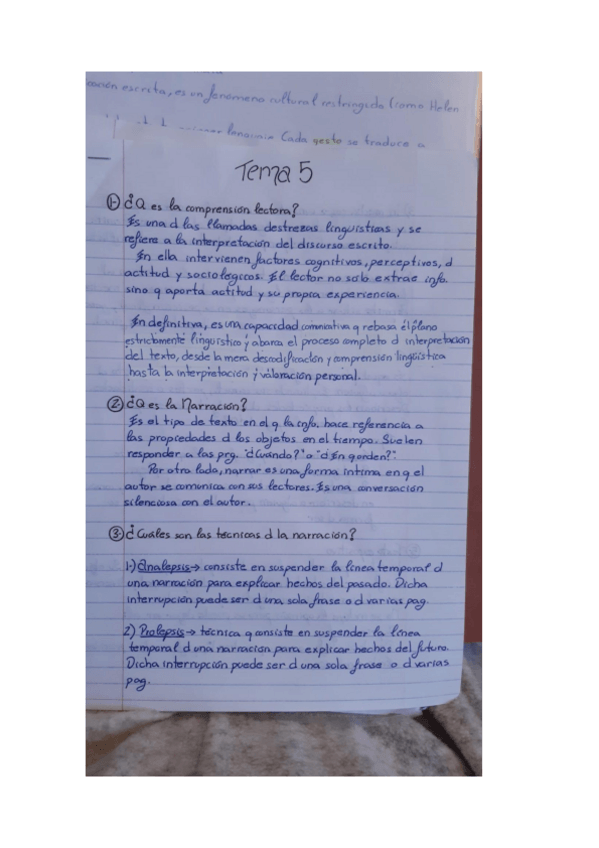 ción escrita, es un fenómeno cultural restringido (como Helen
lenguaje Cada gesto se traduce a
Tema 5
1- ¿Q es la comprensión lectora?
Es una d las llamadas destrezas lingüísticas y se
refiere a la interpretación del discurso escrito.
En ella intervienen factores cognitivos, perceptivos, d
actitud y sociológicos. El lector no solo extrae info.
sino q aporta actitud y su propia experiencia.
En definitiva, es una capacidad comunicativa q rebasa el plano
estrictamente lingüístico y abarca el proceso completo d interpretación
del texto, desde la mera descodificación y comprensión lingüística
hasta la interpretación y valoración personal.
2- ¿Q es la Narración?
Es el tipo de texto en el q la info. hace referencia a
las propiedades d los objetos en el tiempo. Suelen
responder a las prg. "¿Cuándo?" o "¿En q orden?".
Por otro lado, narrar es una forma íntima en q el
autor se comunica con sus lectores. Es una conversación
silenciosa con el autor.
3- ¿Cuáles son las técnicas d la narración?
1-) Analepsis → consiste en suspender la línea temporal d
una narración para explicar hechos del pasado. Dicha
interrupción puede ser d una sola frase o d varias pag.
2) Prolepsis → técnica q consiste en suspender la línea
temporal d una narración para explicar hechos del futuro.
Dicha interrupción puede ser d una sola frase o d varias
pag.